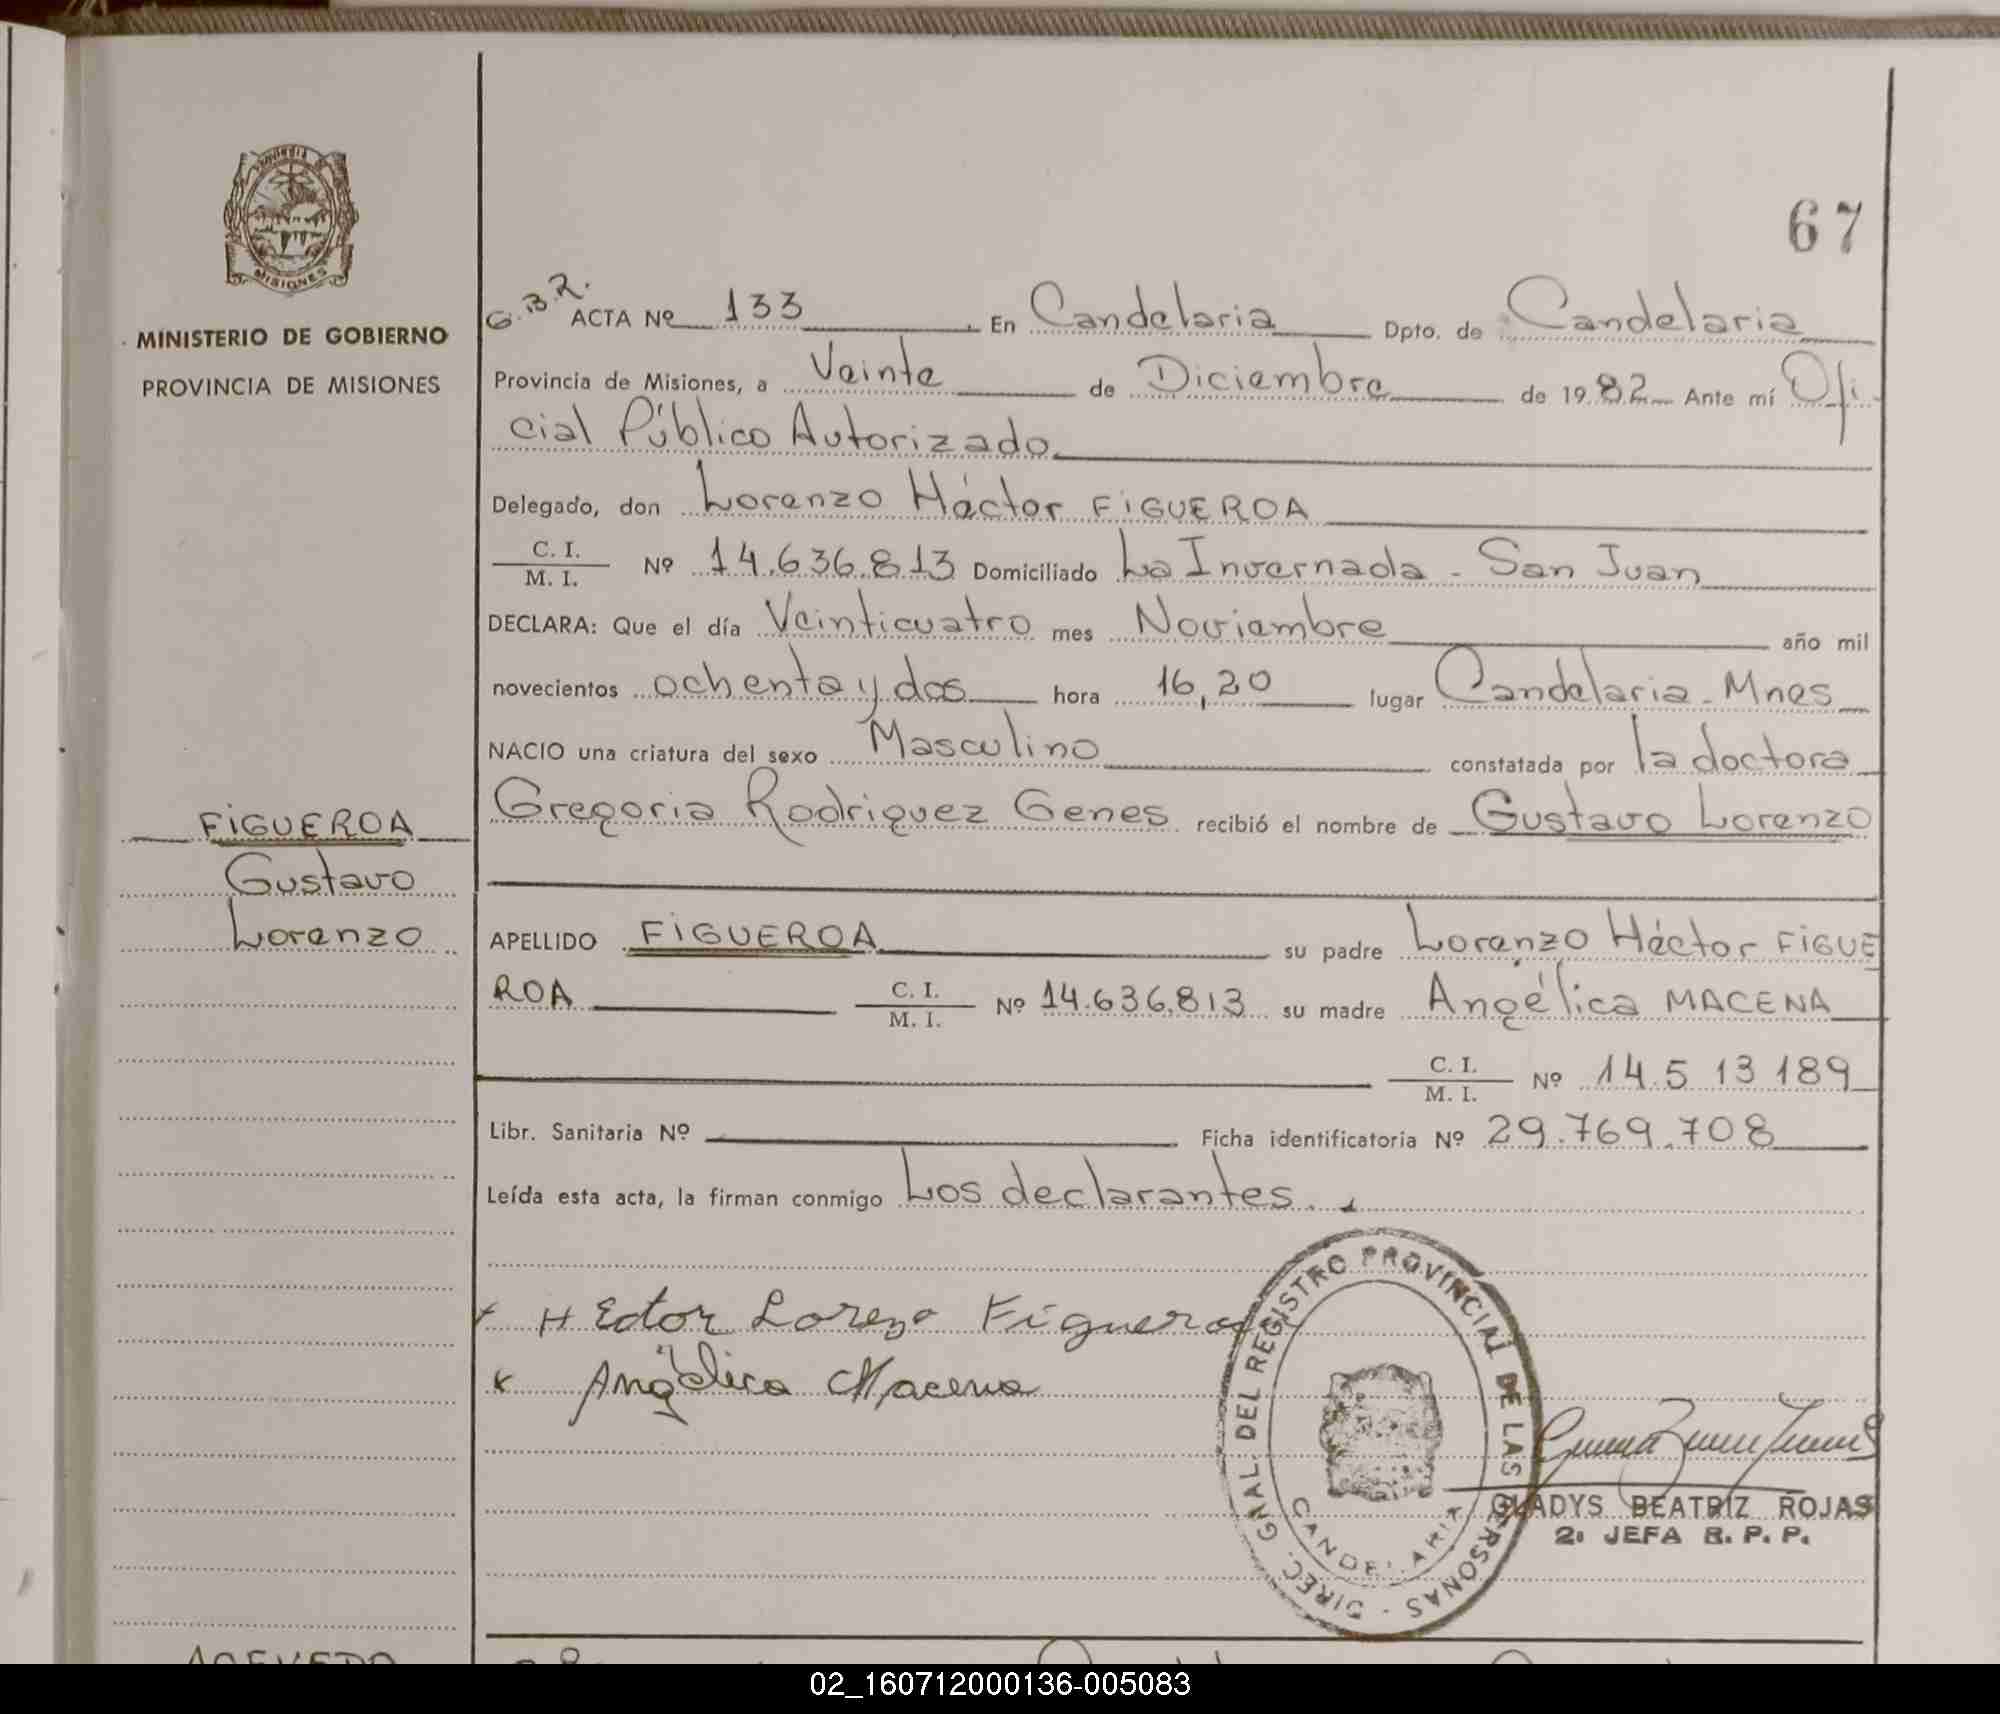 67
MISIONES
MINISTERIO DE GOBIERNO
PROVINCIA DE MISIONES
FIGUEROA
Gustavo
Lorenzo
G.B.R. ACTA Nº 133 En Candelaria Dpto. de Candelaria
Provincia de Misiones, a Veinte de Diciembre de 1982 Ante mí Ofi
cial Público Autorizado
Delegado, don Lorenzo Héctor FIGUEROA
C. I.
M. I. Nº 14.636.813 Domiciliado La Invernada - San Juan
DECLARA: Que el día Veinticuatro mes Noviembre año mil
novecientos ochenta y dos hora 16,20 lugar Candelaria - Mnes
NACIO una criatura del sexo Masculino constatada por la doctora
Gregoria Rodriguez Genes recibió el nombre de Gustavo Lorenzo
APELLIDO FIGUEROA su padre Lorenzo Héctor FIGUE
ROA C. I. M. I. Nº 14.636.813 su madre Angélica MACENA
C. I.
M. I. Nº 14.513189
Libr. Sanitaria Nº Ficha identificatoria Nº 29.769.708
Leída esta acta, la firman conmigo Los declarantes.
HEctor Lorezo Figueroa
Angélica Macena
DIREC. GNAL. DEL REGISTRO PROVINCIAL DE LAS PERSONAS -
CANDELARIA
GLADYS BEATRIZ ROJAS
2ı JEFA R. P. P.
ACEVEDO
02_160712000136-005083